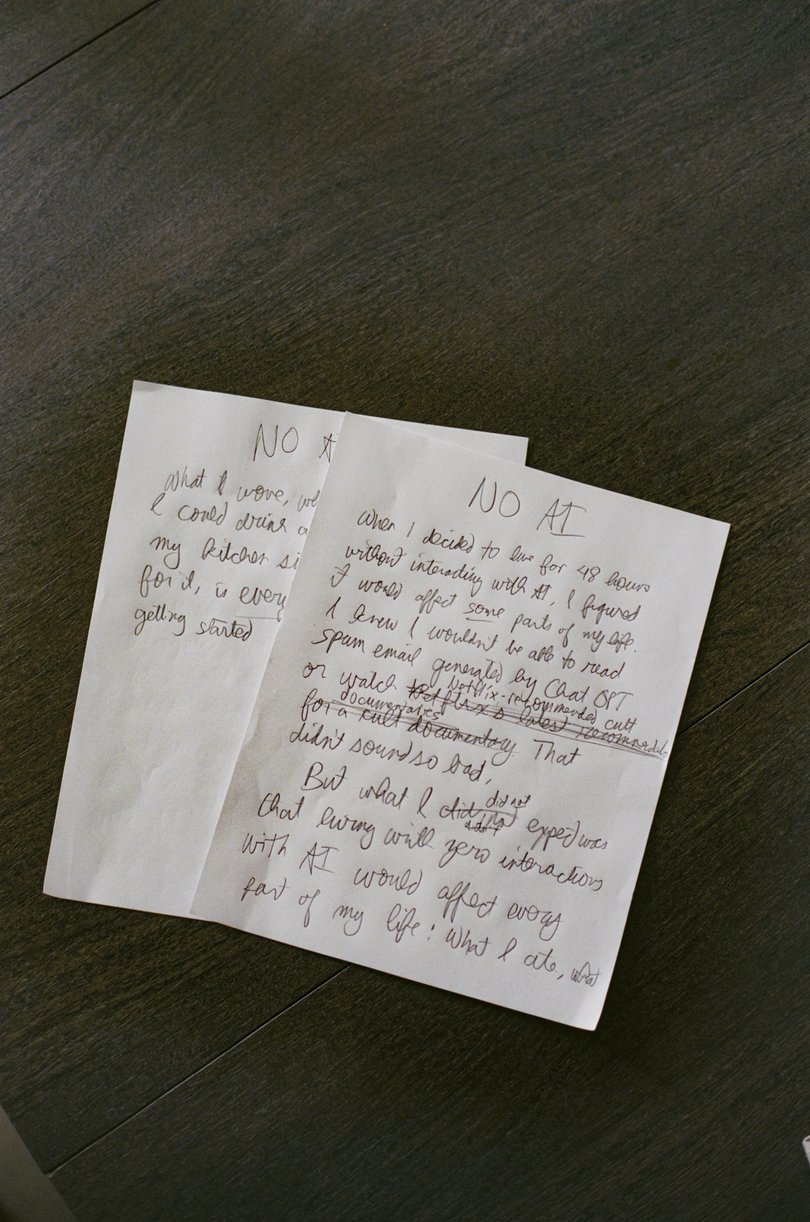 NO AI
When I decided to live for 48 hours
without interacting with AI, I figured
it would affect some parts of my life.
I knew I wouldn't be able to read
spam email generated by Chat GPT
Netflix-recommended cult
or watch Netflix's latest recommended
documentaries
for a cult documentary. That
didn't sound so bad.
did not
But what I did expect was
didn't
that living with zero interactions
with AI would affect every
part of my life: What I ate, what
NO A
What I wore, wh
I could drink
my kitchen si
for it, is every
getting started